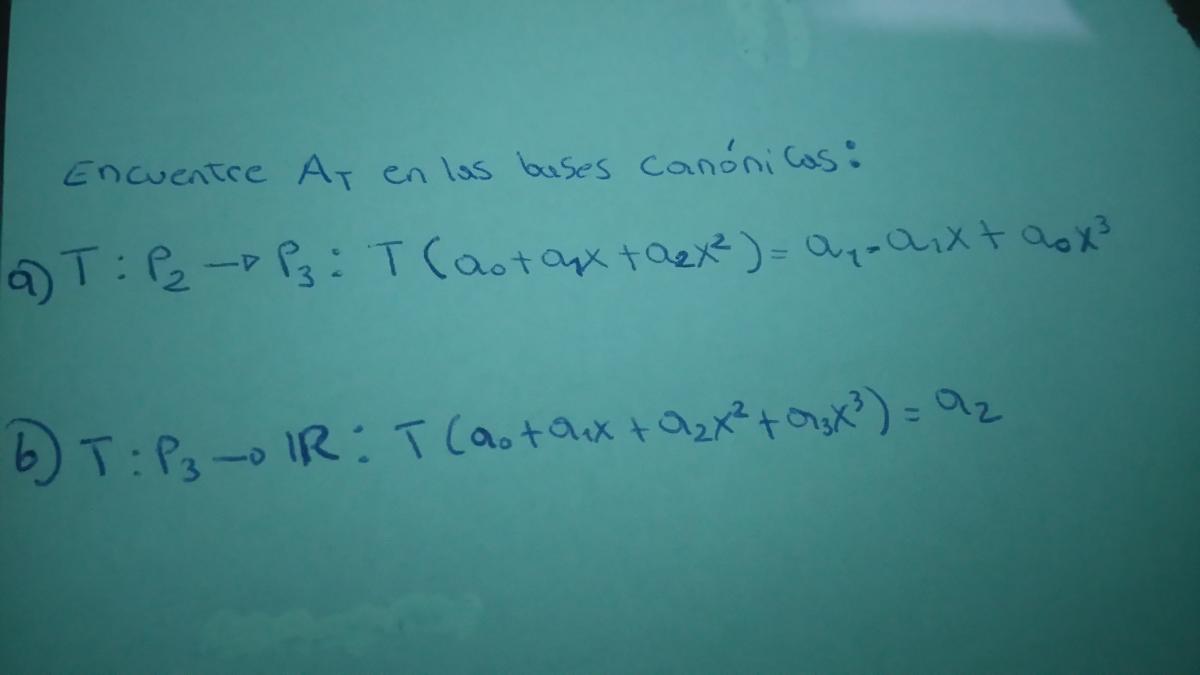 Encuentre A_T en las bases canónicas:
a) T : P₂ → P₃ : T(a₀ + a₁x + a₂x²) = a₁ - a₁x + a₀x³
b) T : P₃ → ℝ : T(a₀ + a₁x + a₂x² + a₃x³) = a₂